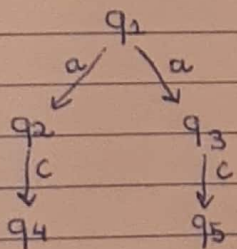 q1
a a
q2 q3
c c
q4 q5